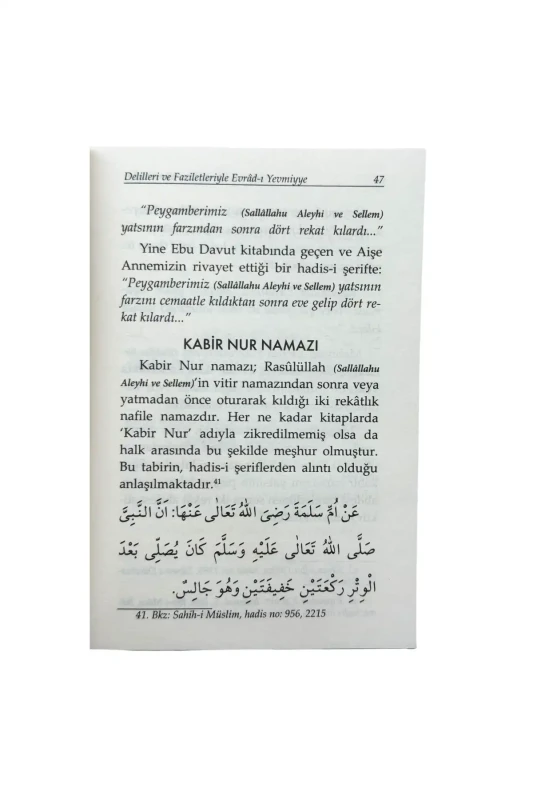 Delilleri ve Faziletleriyle Evrâd-ı Yevmiyye 47
“Peygamberimiz (Sallâllahu Aleyhi ve Sellem)
yatsının farzından sonra dört rekat kılardı...”
Yine Ebu Davut kitabında geçen ve Aişe
Annemizin rivayet ettiği bir hadis-i şerifte:
“Peygamberimiz (Sallâllahu Aleyhi ve Sellem) yatsının
farzını cemaatle kıldıktan sonra eve gelip dört re-
kat kılardı...”
KABİR NUR NAMAZI
Kabir Nur namazı; Rasûlüllah (Sallâllahu
Aleyhi ve Sellem)’in vitir namazından sonra veya
yatmadan önce oturarak kıldığı iki rekâtlık
nafile namazdır. Her ne kadar kitaplarda
‘Kabir Nur’ adıyla zikredilmemiş olsa da
halk arasında bu şekilde meşhur olmuştur.
Bu tabirin, hadis-i şeriflerden alıntı olduğu
anlaşılmaktadır.⁴¹
عَنْ اُمِّ سَلَمَةَ رَضِىَ اللهُ تَعَالٰى عَنْهَا: اَنَّ النَّبِىَّ
صَلَّى اللهُ تَعَالٰى عَلَيْهِ وَسَلَّمَ كَانَ يُصَلِّى بَعْدَ
الْوِتْرِ رَكْعَتَيْنِ خَفِيفَتَيْنِ وَهُوَ جَالِسٌ.
41. Bkz: Sahih-i Müslim, hadis no: 956, 2215